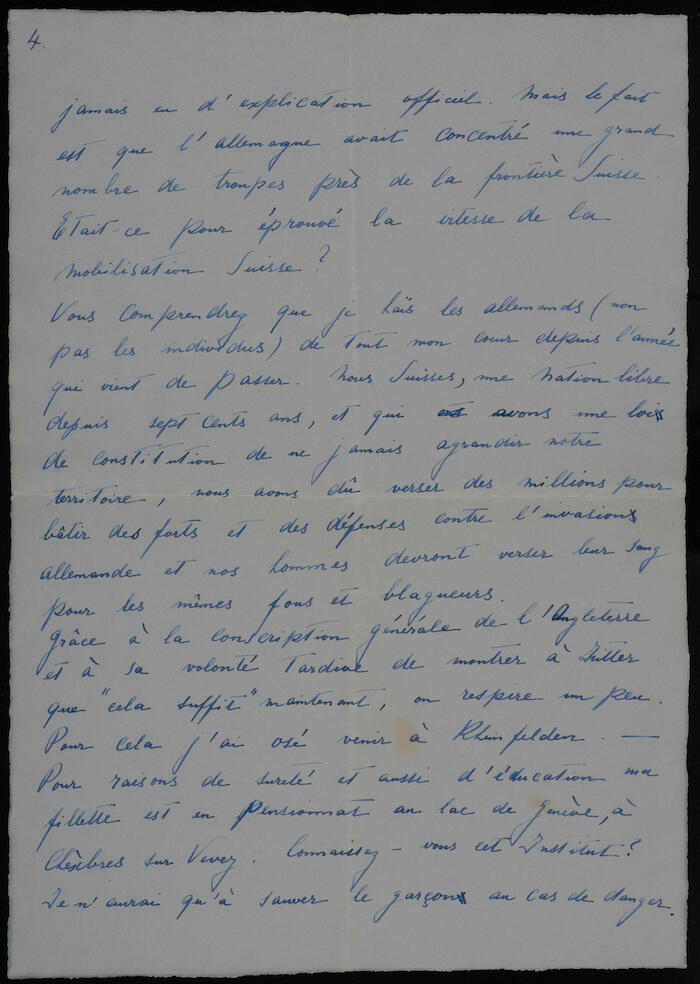 4.
jamais eu d'explication officiel. Mais le fait
est que l'allemagne avait concentré une grand
nombre de troupes près de la frontière Suisse.
Etait-ce pour éprouvé la vitesse de la
mobilisation Suisse?
Vous comprendrez que je haïs les allemands (non
pas les individus) de tout mon cœur depuis l'année
qui vient de passer. Nous Suisses, une Nation libre
depuis sept cents ans, et qui avons une lois
de constitution de ne jamais agrandir notre
territoire, nous avons dû verser des millions pour
bâtir des forts et des défenses contre l'invasion
allemande et nos hommes devront verser leur sang
pour les mêmes fous et blagueurs.
Grâce à la conscription générale de l'Angleterre
et à sa volonté tardive de montrer à Hitler
que "cela suffit" maintenant, on respire un peu.
Pour cela j'ai osé venir à Rheinfelden. —
Pour raisons de sureté et aussi d'éducation ma
fillette est en pensionnat au lac de Genève, à
Chèxbres sur Vevey. Connaissez-vous cet Institut?
Je n'aurai qu'à sauver le garçon au cas de danger.